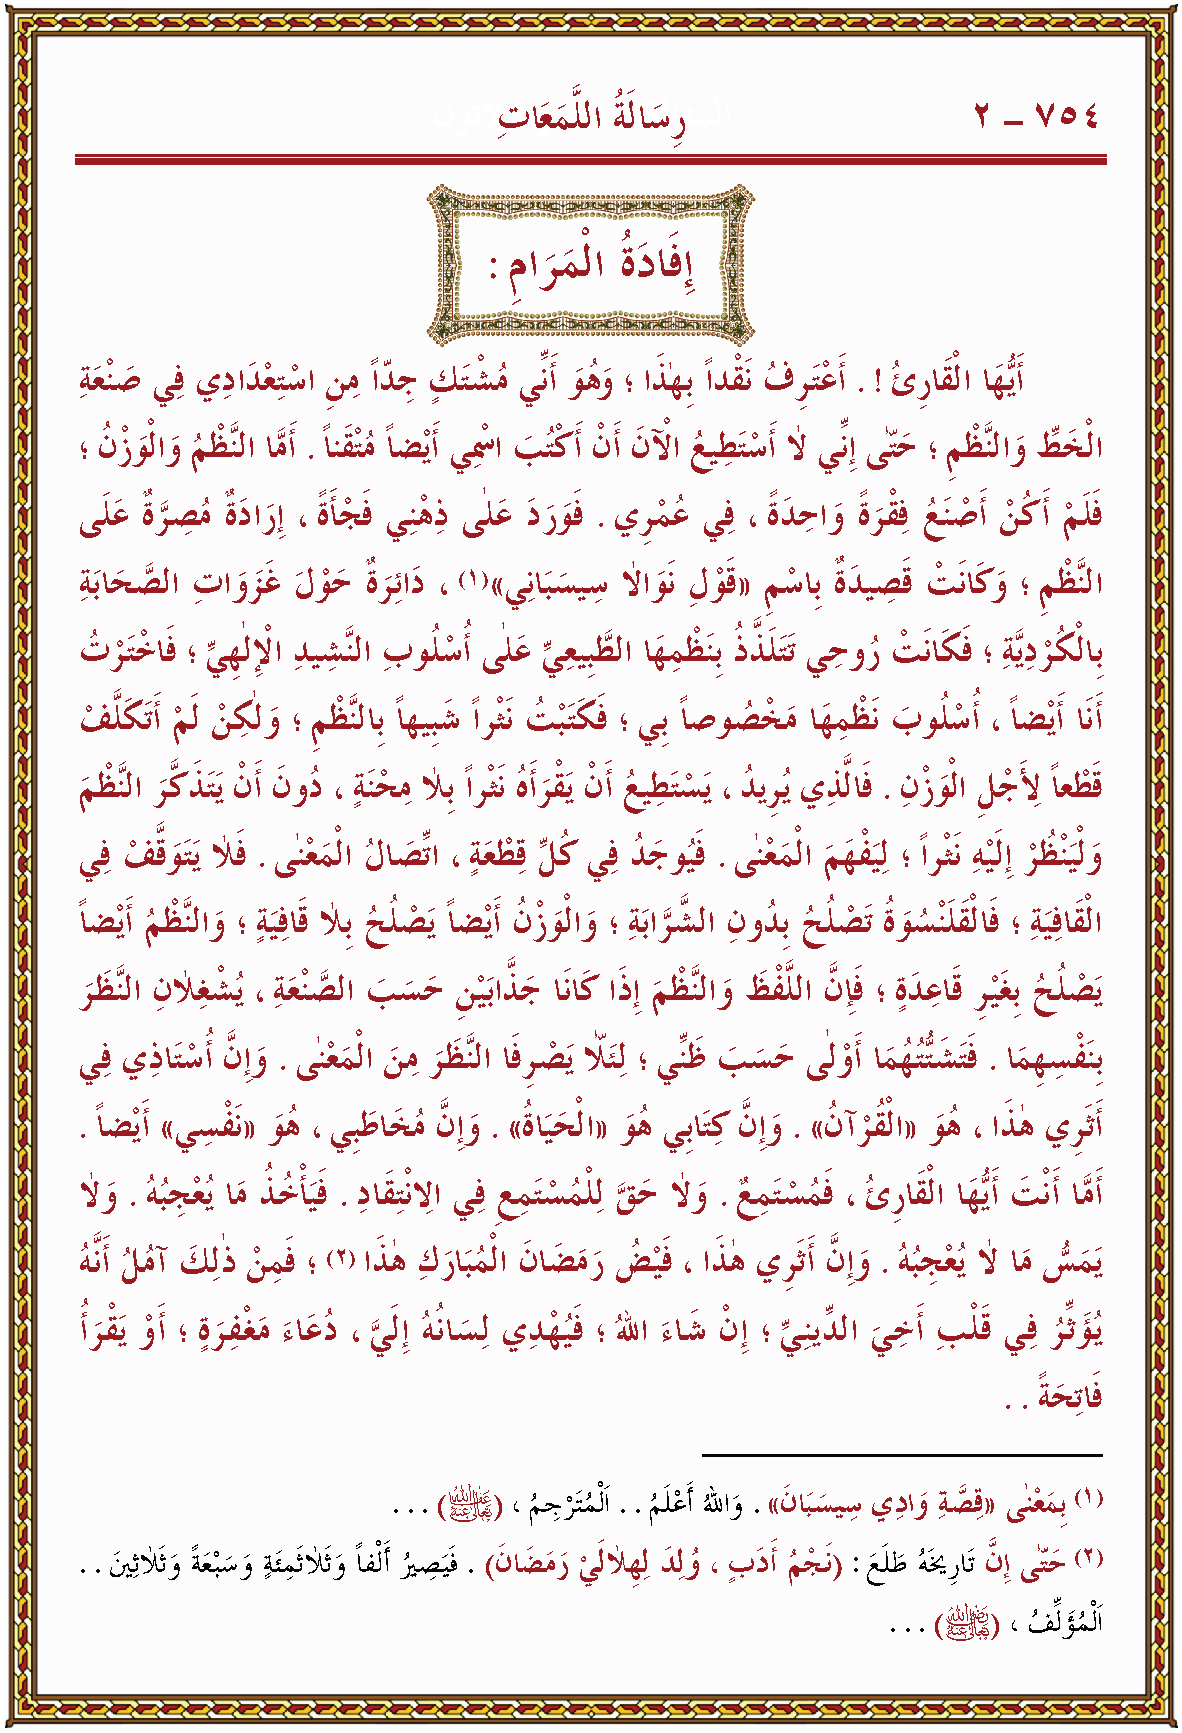 ٧٥٤ – ٢ رِسَالَةُ اللَّمَعَاتِ
إِفَادَةُ الْمَرَامِ :
أَيُّهَا الْقَارِئُ ! . أَعْتَرِفُ نَقْداً بِهٰذَا ؛ وَهُوَ أَنِّي مُشْتَكٍ جِدّاً مِنِ اسْتِعْدَادِي فِي صَنْعَةِ
الْخَطِّ وَالنَّظْمِ ؛ حَتّٰى إِنِّي لاٰ أَسْتَطِيعُ الْآنَ أَنْ أَكْتُبَ اسْمِي أَيْضاً مُتْقَناً . أَمَّا النَّظْمُ وَالْوَزْنُ ؛
فَلَمْ أَكُنْ أَصْنَعُ فِقْرَةً وَاحِدَةً ، فِي عُمْرِي . فَوَرَدَ عَلٰى ذِهْنِي فَجْأَةً ، إِرَادَةٌ مُصِرَّةٌ عَلَى
النَّظْمِ ؛ وَكَانَتْ قَصِيدَةٌ بِاسْمِ «قَوْلِ نَوَالاٰ سِيسَبَانِي»(١) ، دَائِرَةٌ حَوْلَ غَزَوَاتِ الصَّحَابَةِ
بِالْكُرْدِيَّةِ ؛ فَكَانَتْ رُوحِي تَتَلَذَّذُ بِنَظْمِهَا الطَّبِيعِيِّ عَلٰى أُسْلُوبِ النَّشِيدِ الْإِلٰهِيِّ ؛ فَاخْتَرْتُ
أَنَا أَيْضاً ، أُسْلُوبَ نَظْمِهَا مَخْصُوصاً بِي ؛ فَكَتَبْتُ نَثْراً شَبِيهاً بِالنَّظْمِ ؛ وَلٰكِنْ لَمْ أَتَكَلَّفْ
قَطْعاً لِأَجْلِ الْوَزْنِ . فَالَّذِي يُرِيدُ ، يَسْتَطِيعُ أَنْ يَقْرَأَهُ نَثْراً بِلاٰ مِحْنَةٍ ، دُونَ أَنْ يَتَذَكَّرَ النَّظْمَ
وَلْيَنْظُرْ إِلَيْهِ نَثْراً ؛ لِيَفْهَمَ الْمَعْنٰى . فَيُوجَدُ فِي كُلِّ قِطْعَةٍ ، اتِّصَالُ الْمَعْنٰى . فَلاٰ يَتَوَقَّفْ فِي
الْقَافِيَةِ ؛ فَالْقَلَنْسُوَةُ تَصْلُحُ بِدُونِ الشَّرَّابَةِ ؛ وَالْوَزْنُ أَيْضاً يَصْلُحُ بِلاٰ قَافِيَةٍ ؛ وَالنَّظْمُ أَيْضاً
يَصْلُحُ بِغَيْرِ قَاعِدَةٍ ؛ فَإِنَّ اللَّفْظَ وَالنَّظْمَ إِذَا كَانَا جَذَّابَيْنِ حَسَبَ الصَّنْعَةِ ، يُشْغِلاٰنِ النَّظَرَ
بِنَفْسِهِمَا . فَتَشَتُّتُهُمَا أَوْلٰى حَسَبَ ظَنِّي ؛ لِئَلاّٰ يَصْرِفَا النَّظَرَ مِنَ الْمَعْنٰى . وَإِنَّ أُسْتَاذِي فِي
أَثَرِي هٰذَا ، هُوَ «الْقُرْآنُ» . وَإِنَّ كِتَابِي هُوَ «الْحَيَاةُ» . وَإِنَّ مُخَاطَبِي ، هُوَ «نَفْسِي» أَيْضاً .
أَمَّا أَنْتَ أَيُّهَا الْقَارِئُ ، فَمُسْتَمِعٌ . وَلاٰ حَقَّ لِلْمُسْتَمِعِ فِي الِانْتِقَادِ . فَيَأْخُذُ مَا يُعْجِبُهُ . وَلاٰ
يَمَسُّ مَا لاٰ يُعْجِبُهُ . وَإِنَّ أَثَرِي هٰذَا ، فَيْضُ رَمَضَانَ الْمُبَارَكِ هٰذَا (٢) ؛ فَمِنْ ذٰلِكَ آمُلُ أَنَّهُ
يُؤَثِّرُ فِي قَلْبِ أَخِيَ الدِّينِيِّ ؛ إِنْ شَاءَ اللهُ ؛ فَيُهْدِي لِسَانُهُ إِلَيَّ ، دُعَاءَ مَغْفِرَةٍ ؛ أَوْ يَقْرَأُ
فَاتِحَةً . .
(١) بِمَعْنٰى «قِصَّةِ وَادِي سِيسَبَانَ» . وَاللهُ أَعْلَمُ . . اَلْمُتَرْجِمُ ، (عَفَا اللهُ تَعَالٰى عَنْهُ) . . .
(٢) حَتّٰى إِنَّ تَارِيخَهُ طَلَعَ : (نَجْمُ أَدَبٍ ، وُلِدَ لِهِلاٰلَيْ رَمَضَانَ) . فَيَصِيرُ أَلْفاً وَثَلاٰثَمِئَةٍ وَسَبْعَةً وَثَلاٰثِينَ . .
اَلْمُؤَلِّفُ ، (رَضِيَ اللهُ تَعَالٰى عَنْهُ) . . .